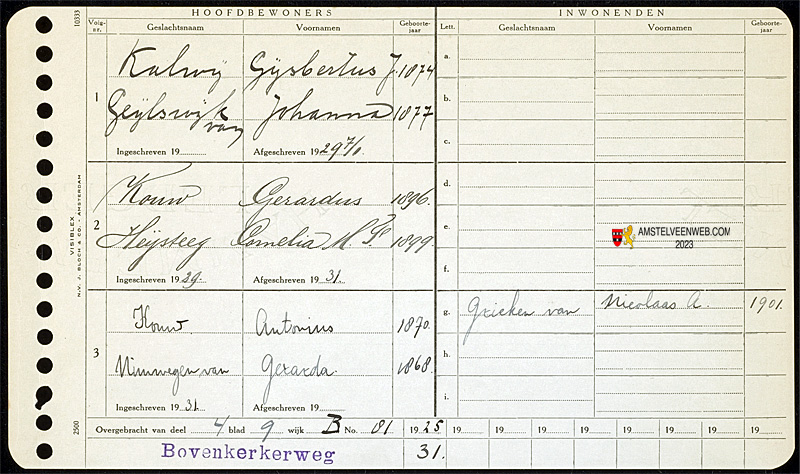 HOOFDBEWONERS INWONENDEN
Volg-nr. Geslachtsnaam Voornamen Geboorte-jaar Lett. Geslachtsnaam Voornamen Geboorte-jaar
10333
a.
Kalwij Gijsbertus J. 1874
1
b.
Geijlswijk van Johanna 1877
c.
Ingeschreven 19 Afgeschreven 1929
d.
Kouw Gerardus 1896.
2
e.
Heijsteeg Cornelia M. 1899
AMSTELVEENWEB.COM
2023
f.
Ingeschreven 1929. Afgeschreven 1931.
VISIBLEX
N.V. J. BLOCH & CO. - AMSTERDAM
g. Grieken van Nicolaas A. 1901.
Kouw. Antonius 1870.
3
h.
Nimwegen van Gerarda. 1868.
i.
Ingeschreven 1931. Afgeschreven 19
2500
Overgebracht van deel 4 blad 9 wijk B No. 81. 1925 19 19 19 19 19 19 19 19
Bovenkerkerweg 31.